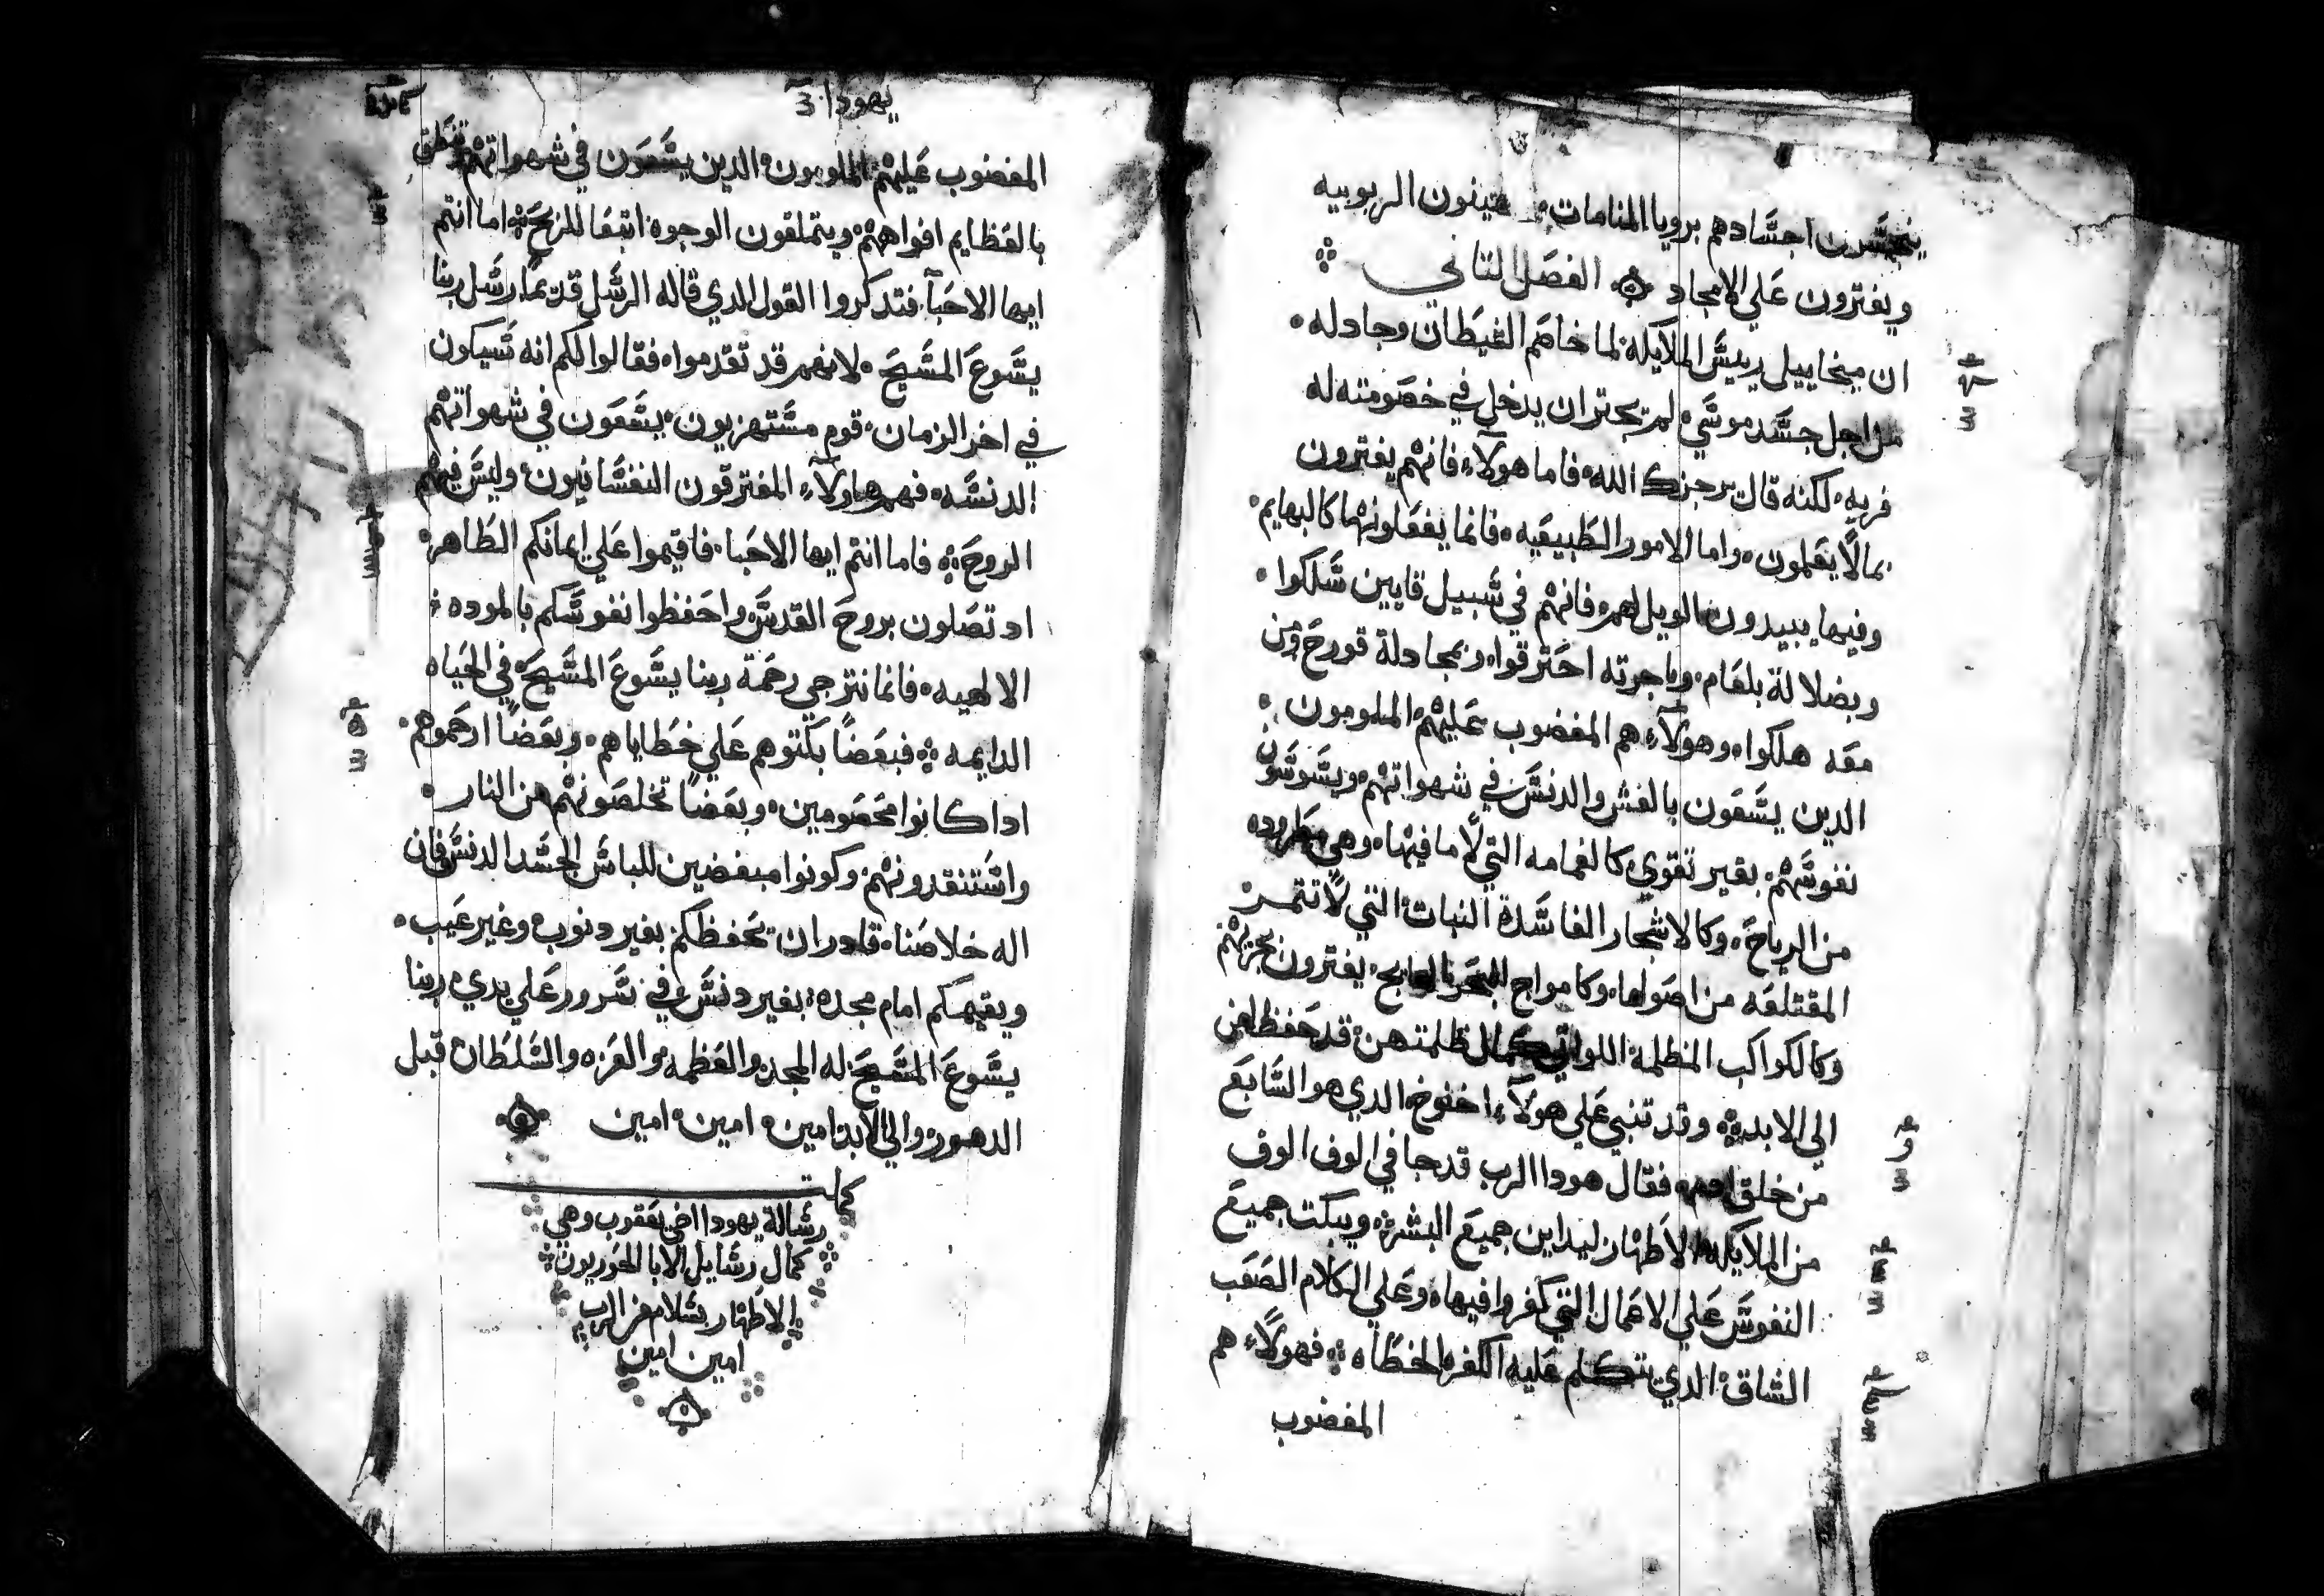 ينجسون اجسادهم برويا المنامات يهينون الربوبيه
ويفترون علي الامجاد الفصل التاني
ان ميخاييل رييس الملايكه لما خاصم الشيطان وجادله
من اجل جسد موسي لم يجتر ان يدخل في خصومته له
فريه لكنه قال يرجزك الله فاما هولاء فانهم يفترون
بما لا يعلمون واما الامور الطبيعيه فانما يفعلونها كالبهايم
وفيها يبيدون الويل لهم فانهم في سبيل قايين سلكوا
وبضلالة بلعام وباجرته احترقوا وبمجادلة قورح ومن
معه هلكوا وهولاء هم المغضوب عليهم الملومون
الدين يسعون بالغش والدنس في شهواتهم ويسوسون
نفوسهم بغير تقوي كالغمامه التي لا ما فيها وهي مطروده
من الرياح وكالاشجار الفاسدة النبات التي لا تتمر
المقتلعه من اصولها وكامواج البحر الهايج يفترون بخزيهم
وكالكواكب المظلمه اللواتي كمال ظلمتهن قد حفظ لهن
الي الابد وقد تنبي علي هولاء اخنوخ الدي هو السابع
من خلق ادم فقال هودا الرب قد جا في الوف الوف
من الملايكه الاطهار ليداين جميع البشر ويبكت جميع
النفوس علي الاعمال التي كفروا فيها وعلي الكلام الصعب
الشاق الدي تتكلم عليه الكفره الخطاه فهولاء هم
المغضوب
يهودا
المغضوب عليهم الملومون الدين يسعون في شهواتهم وتنطق
بالعظايم افواههم ويتملقون الوجوه ابتغا للربح اما انتم
ايها الاحبا فتدكروا القول الدي قاله الرسل قديما رسل ربنا
يسوع المسيح لانهم قد تقدموا فقالوا لكم انه سيكون
في اخر الزمان قوم مستهزيون يسعون في شهواتهم
الدنسه فهم هاولاء المفترقون النفسانيون وليس فيهم
الروح فاما انتم ايها الاحبا فاقيموا علي ايمانكم الطاهر
اد تصلون بروح القدس واحفظوا نفوسكم بالموده
الالهيه فانما نترجي رحمة ربنا يسوع المسيح في الحياه
الدايمه فبعضا بكتوهم علي خطاياهم وبعضا ارحموهم
ادا كانوا مخصومين وبعضا تخلصونهم من النار
واستنقدونهم وكونوا مبغضين للباس الجسد الدنس فان
اله خلاصنا قادر ان يحفظكم بغير دنوب وغير عيب
ويقيمكم امام مجده بغير دنس في سرور علي يدي ربنا
يسوع المسيح له المجد والعظمه والعزه والسلطان قبل
الدهور والي الابد امين امين امين
كملت
رسالة يهودا اخي يعقوب وهي
كمال رسايل الابا الحوريون
الاطهار بسلام من الرب
امين امين